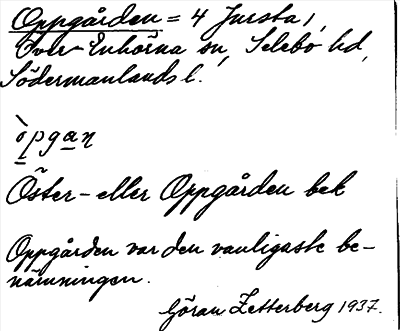 Oppgården = 4 Jursta,
Över-Enhörna sn, Selebo hd,
Södermanlands l.
òpgan
Öster- eller Oppgården bek
Oppgården var den vanligaste be-
nämningen.
Göran Zetterberg 1937.